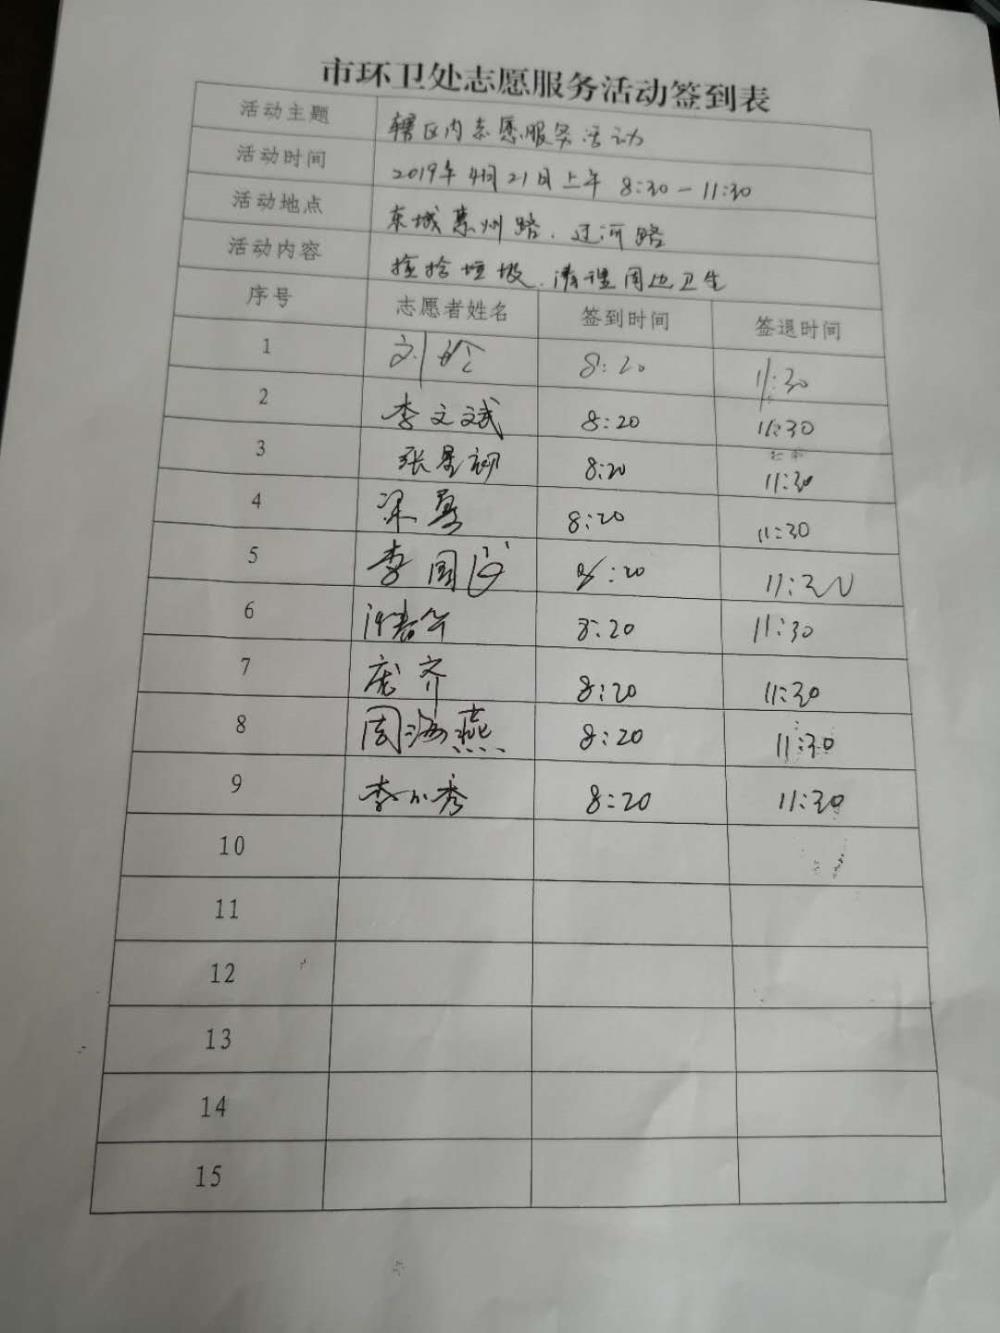 市环卫处志愿服务活动签到表
活动主题 辖区内志愿服务活动
活动时间 2019年4月21日上午 8:30-11:30
活动地点 东城惠州路、过河路
活动内容 捡拾垃圾、清理周边卫生
序号 志愿者姓名 签到时间 签退时间
1 刘 8:20 11:30
2 李文斌 8:20 11:30
3 张 8:20 11:30
4 梁 8:20 11:30
5 李国 8:20 11:30
6 8:20 11:30
7 庞齐 8:20 11:30
8 周海燕 8:20 11:30
9 李小秀 8:20 11:30
10
11
12
13
14
15